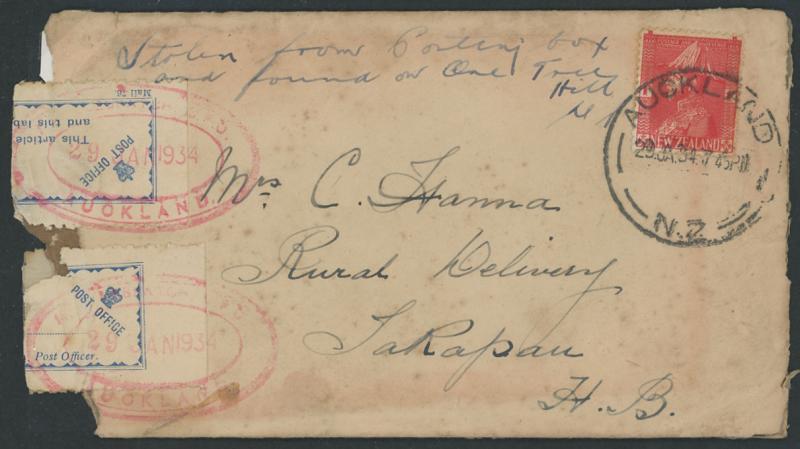 Stolen from Posting box
and found on One Tree
Hill
NEW ZEALAND
AUCKLAND
29 JA.34.7 45PM
N.Z.
Mail 76.
This article
and this lab
POST OFFICE
29 JAN 1934
AUCKLAND
Mrs C. Hanna
Rural Delivery
Takapau
H. B.
POST OFFICE
29 JAN 1934
Post Officer.
AUCKLAND